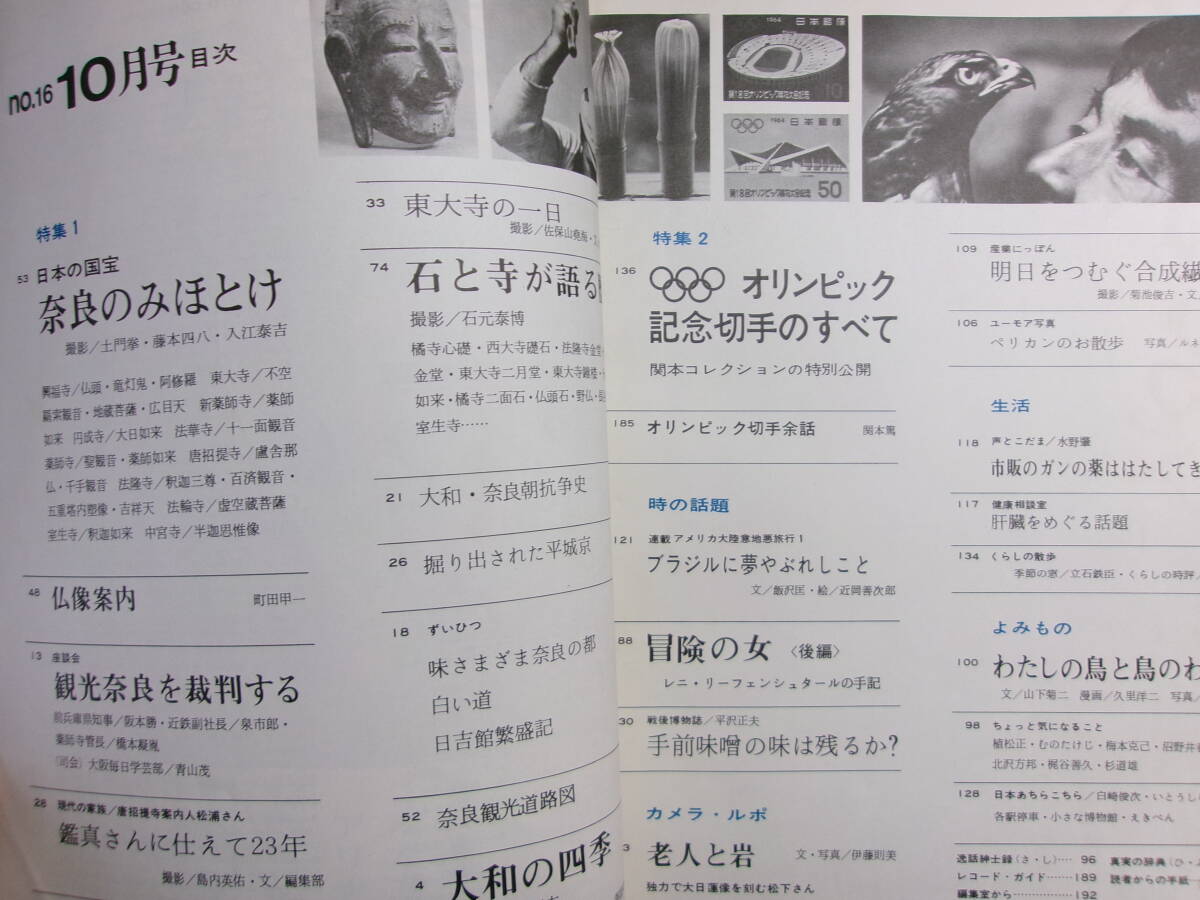 no.16 10月号 目次
特集1
53 日本の国宝
奈良のみほとけ
撮影/土門拳・藤本四八・入江泰吉
興福寺/仏頭・竜灯鬼・阿修羅 東大寺/不空
羂索観音・地蔵菩薩・広目天 新薬師寺/薬師
如来 円成寺/大日如来 法華寺/十一面観音
薬師寺/聖観音・薬師如来 唐招提寺/盧舎那
仏・千手観音 法隆寺/釈迦三尊・百済観音・
五重塔内塑像・吉祥天 法輪寺/虚空蔵菩薩
室生寺/釈迦如来 中宮寺/半迦思惟像
48 仏像案内 町田甲一
13 座談会
観光奈良を裁判する
前兵庫県知事/阪本勝・近鉄副社長/泉市郎・
薬師寺管長/橋本凝胤
(司会)大阪毎日学芸部/青山茂
28 現代の家族/唐招提寺案内人松浦さん
鑑真さんに仕えて23年
撮影/島内英佑・文/編集部
33 東大寺の一日
撮影/佐保山堯海・
74 石と寺が語る
撮影/石元泰博
橘寺心礎・西大寺礎石・法隆寺金堂
金堂・東大寺二月堂・東大寺鐘楼・
如来・橘寺二面石・仏頭石・野仏・
室生寺……
21 大和・奈良朝抗争史
26 掘り出された平城京
18 ずいひつ
味さまざま奈良の都
白い道
日吉館繁盛記
52 奈良観光道路図
4 大和の四季
1964 日本郵便
第18回オリンピック競技大会記念 10
1964 日本郵便
第18回オリンピック競技大会記念 50
特集2
136 オリンピック
記念切手のすべて
関本コレクションの特別公開
185 オリンピック切手余話 関本篤
時の話題
121 連載 アメリカ大陸意地悪旅行1
ブラジルに夢やぶれしこと
文/飯沢匡・絵/近岡善次郎
88 冒険の女〈後編〉
レニ・リーフェンシュタールの手記
30 戦後博物誌/平沢正夫
手前味噌の味は残るか?
カメラ・ルポ
3 老人と岩 文・写真/伊藤則美
独力で大日蓮像を刻む松下さん
109 産業にっぽん
明日をつむぐ合成繊
撮影/菊池俊吉・文
106 ユーモア写真
ペリカンのお散歩 写真/ルネ
生活
118 声とこだま/水野肇
市販のガンの薬ははたしてき
117 健康相談室
肝臓をめぐる話題
134 くらしの散歩
季節の窓/立石鉄臣・くらしの時評/
よみもの
100 わたしの鳥と鳥のわ
文/山下菊二 漫画/久里洋二 写真
98 ちょっと気になること
植松正・むのたけじ・梅本克己・沼野井
北沢方邦・梶谷善久・杉道雄
128 日本あちらこちら/白崎俊次・いとうし
各駅停車・小さな博物館・えきべん
逸話紳士録(さ・し)…… 96 真実の辞典(ひ・
レコード・ガイド……189 読者からの手紙
編集室から……………192